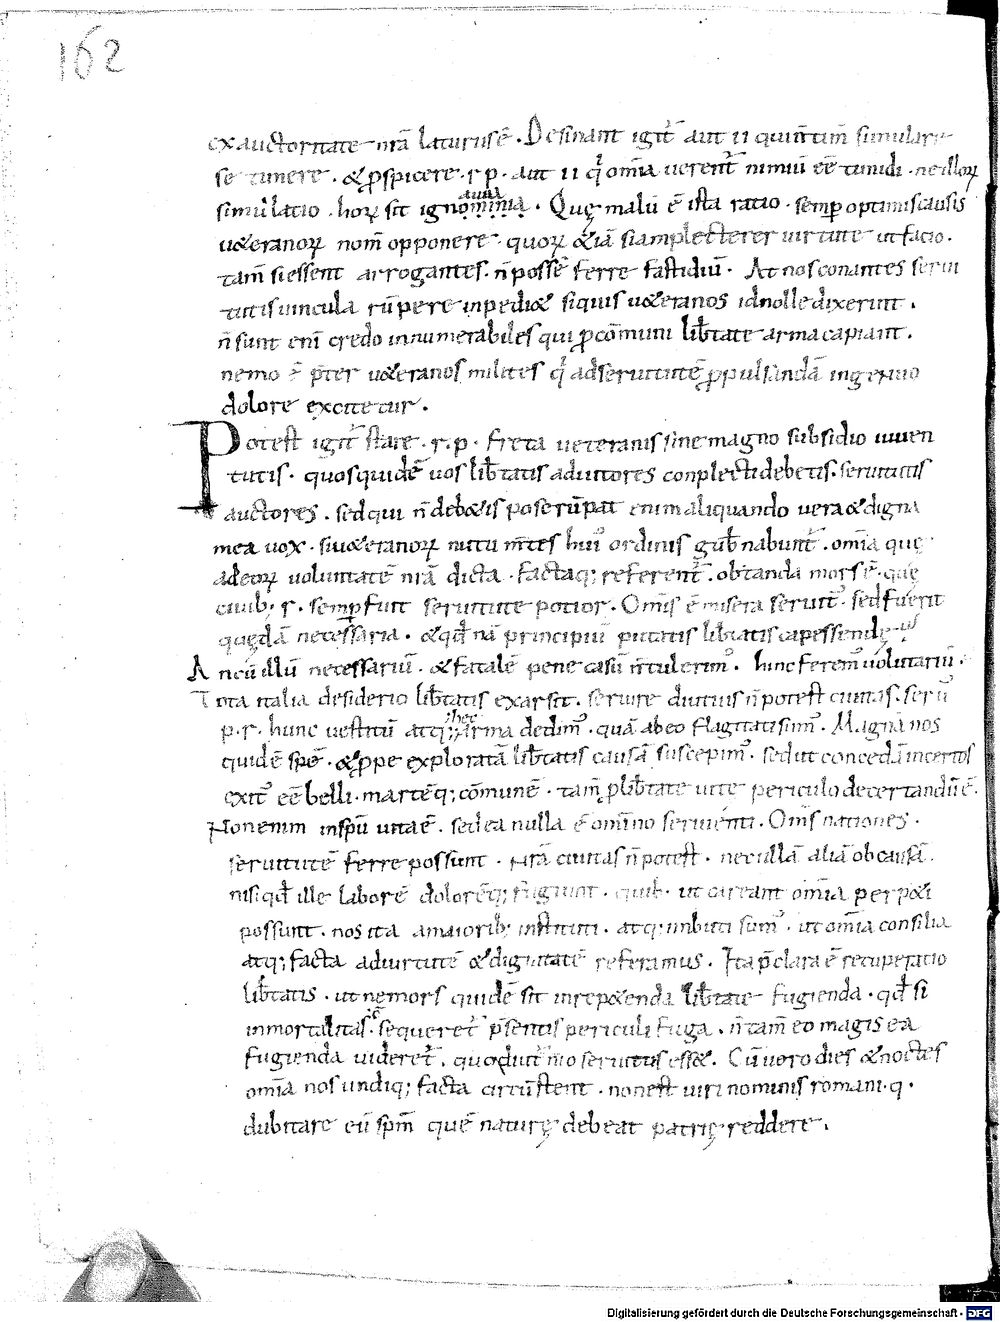 162
exauctoritate nrā laturusē. Desinant igit̄ aut ii qui
se timere. & ꝓspicere. r p. aut ii q̄ om̄ia uerent̄ nimiū eē timidi. ne illoꝝ
simulatio. hoꝝ sit ignominia. Quę malū ē ista ratio. semp optimis causis
u&eranoꝝ nom̄ opponere. quoꝝ &iā si amplecterer uirtutē ut facio.
tam̄ si essent arrogantes. n̄ possē ferre fastidiū. At nos conantes serui
tutis uincula rūpere inpedi& siquis u&eranos id nolle dixerint.
n̄ sunt enī credo innumerabiles qui ꝓ cōmuni lib̄tate arma capiant.
nemo ē p̄ter u&eranos milites q̄ ad seruitutē ꝓpulsandā ingenuo
dolore excitetur.
Potest igit̄ stare. r. p. freta ueteranis sine magno subsidio iuuen
tutis. quos quidē uos lib̄tatis adiutores conplecti debetis. seruitutis
auctores. sed qui n̄ deb&is poserūpat enim aliquando uera & digna
mea uox. si u&eranoꝝ nutu m̄tes hui᾽ ordinis gub̄nabunt̄. om̄ia que
ad eoꝝ uoluntatē nrā dicta. factaq; referent̄. obtanda mors ē. que
ciuib; r. semp fuit seruitute potior. Om̄is ē misera seruit᾽. sed fuerit
quędā necessaria. &qd̄ nā principiū putatis lib̄tatis capessendę
An cū illū necessariū. & fatalē pene casū n̄ tulerim᾽. hunc ferem᾽ uolutariū.
Tota italia desiderio lib̄tatis exarsit. seruire diutius n̄ potest ciuitas. seri᾽
p. r. hunc uestitū atq; hec arma dedim᾽. quā ab eo flagitati sum᾽. Magnā nos
quidē spē. & ꝓpe exploratā lib̄tatis causā suscepim᾽. sed ut concedā incertos
exit᾽ eē belli. martēq; cōmunē. tam̄ p lib̄tate uite periculo decertandū ē.
Non enim in spū uita ē. sed ea nulla ē om̄ino seruienti. Om̄s nationes.
seruitutē ferre possunt. Nrā ciuitas n̄ potest. nec ullā aliā ob causā.
nisi qd̄ ille laborē dolorēq; fugiunt. quib. ut careant om̄ia perp&i
possunt. nos ita a maiorib; instituti. atq; imbuti sum᾽. ut om̄ia consilia
atq; facta ad uirtutē & dignitatē referamus. Ita p̄clara ē recuperatio
lib̄tatis. ut ne mors quidē sit in rep&enda lib̄tate fugienda. qd̄ si
inmortalitas sequeret̄ p̄sentis periculi fuga. n̄ tam̄ eo magis ea
fugienda uideret̄. quo diut᾽nio seruitus ess&. Cū uero dies & noctes
om̄ia nos undiq; facta circūstent. non est uiri nominis romani. q.
dubitare eū spm̄ quē naturę debeat patrię reddere.
Digitalisierung gefördert durch die Deutsche Forschungsgemeinschaft - DFG